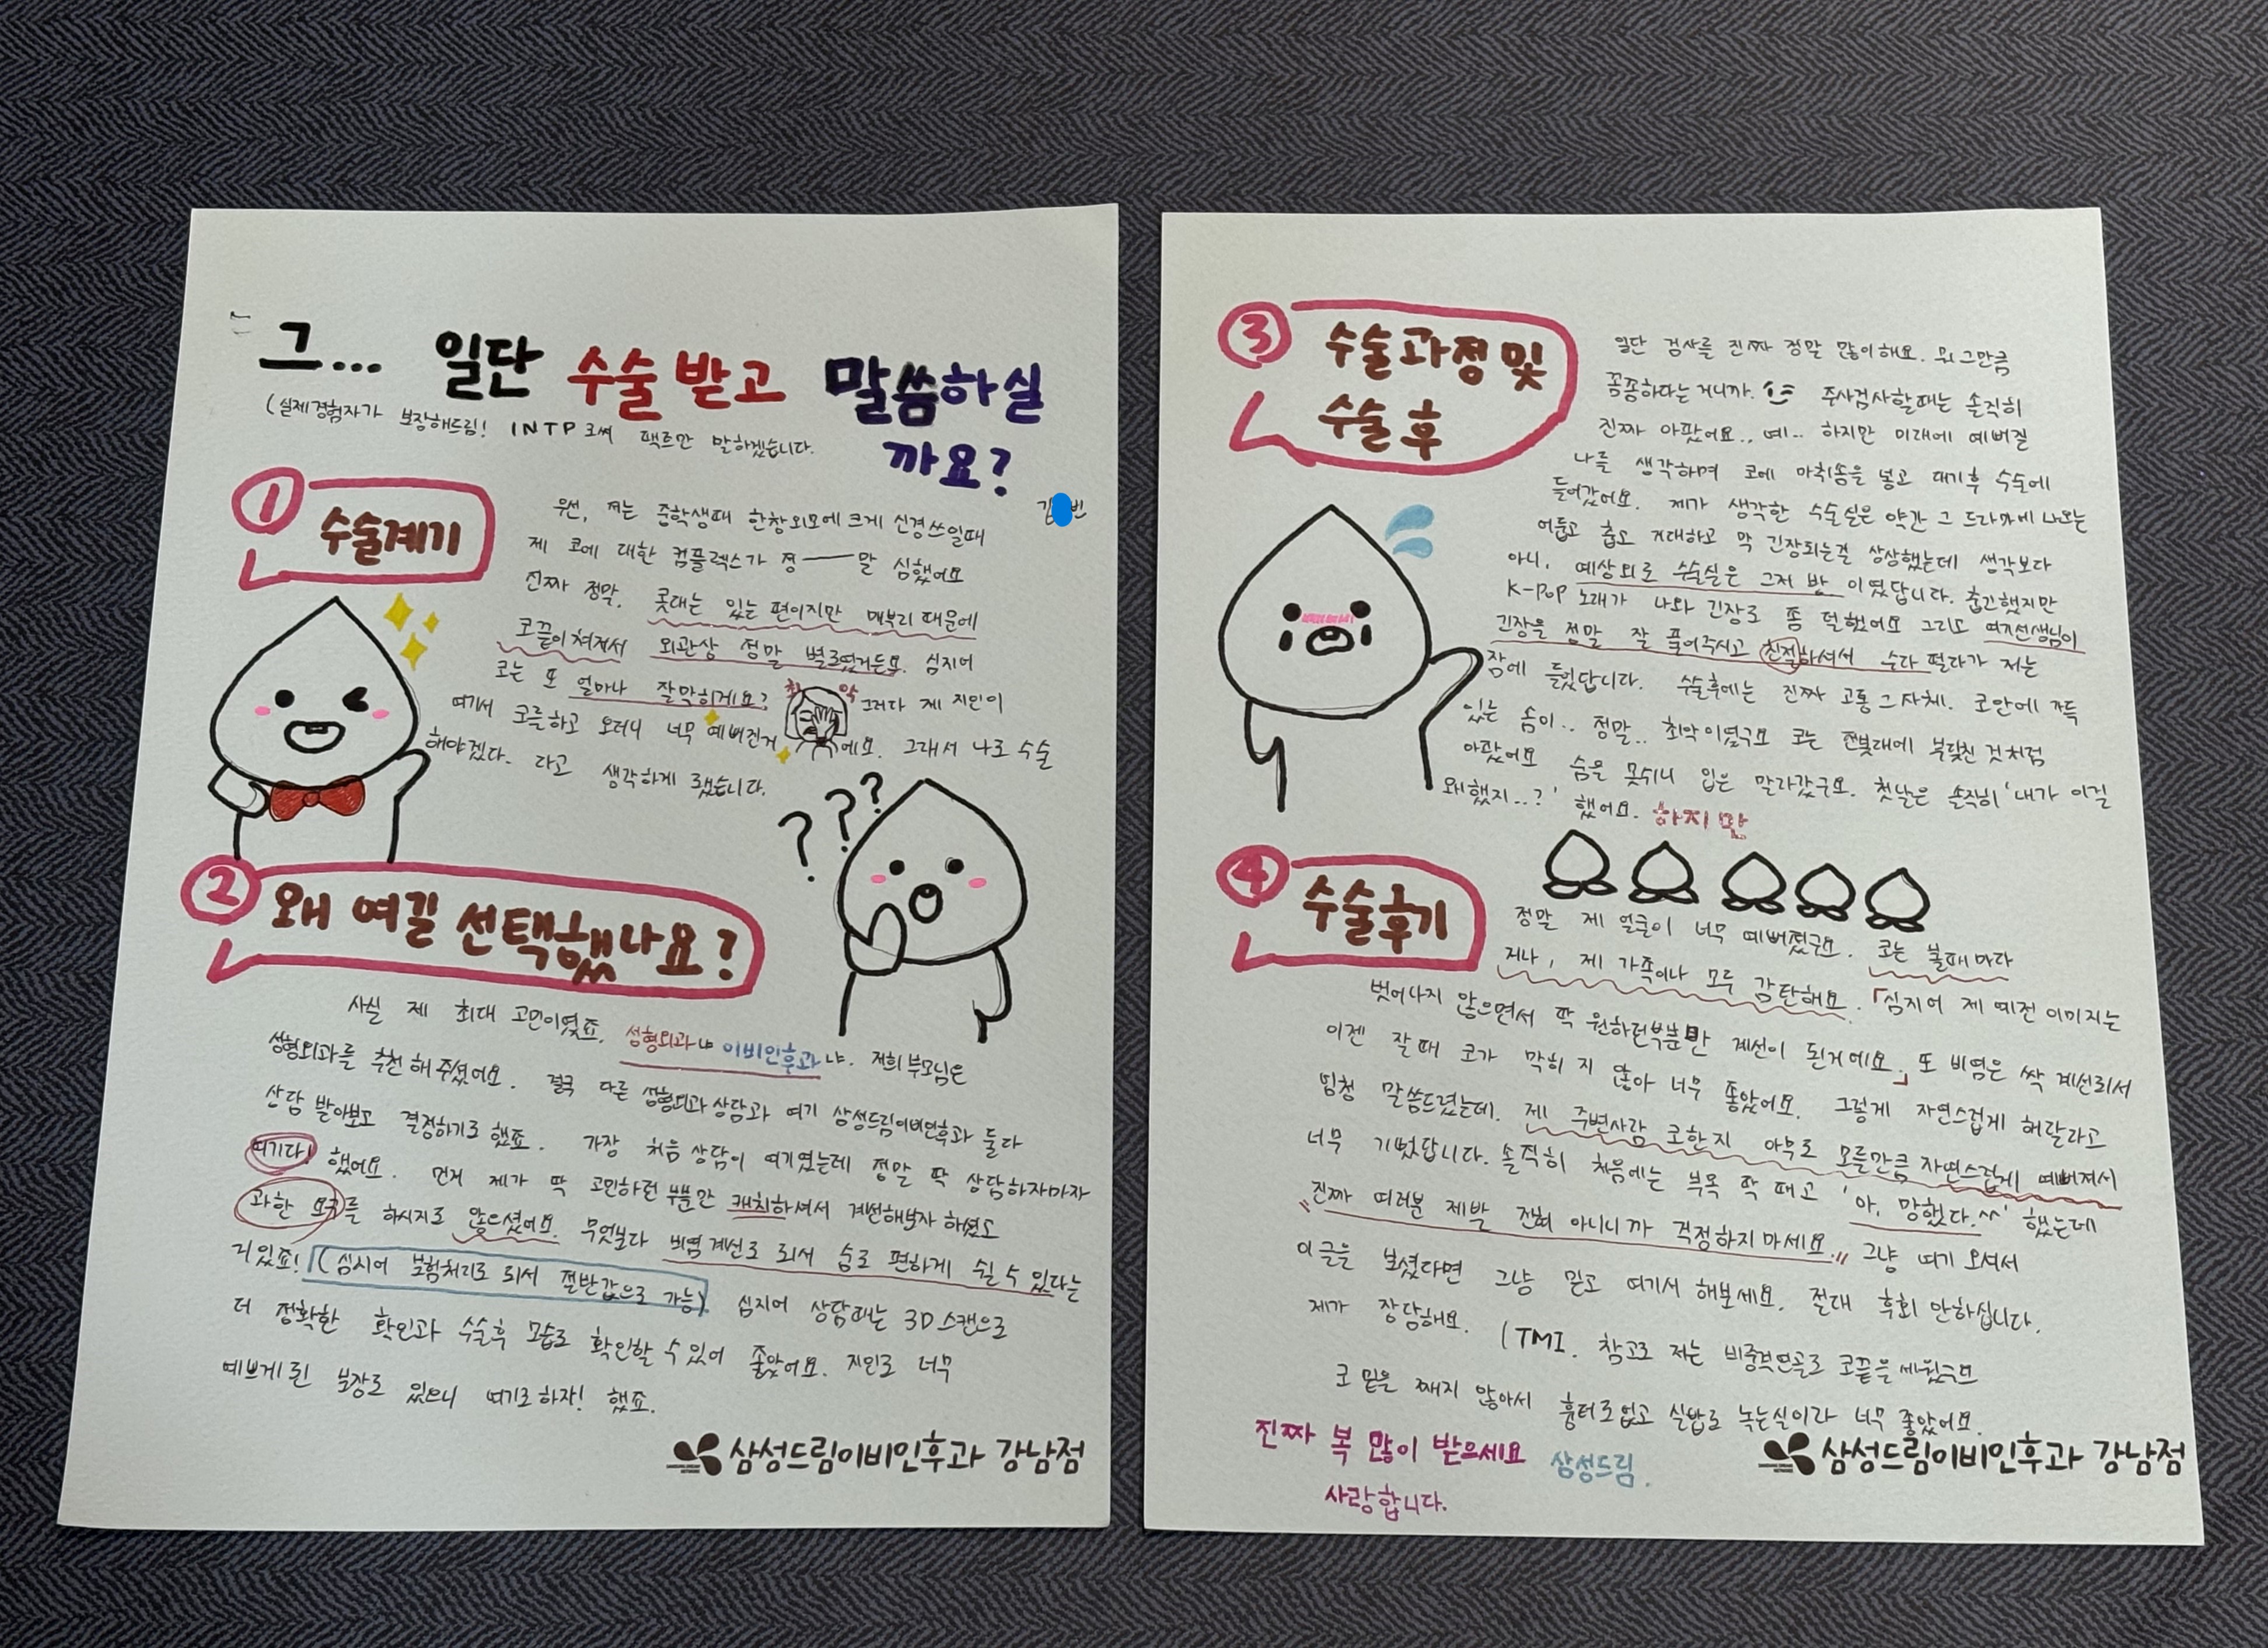 그... 일단 수술 받고 말씀하실
까요?
(실제경험자가 보장해드림! INTP로써 팩트만 말하겠습니다.
김 빈
① 수술계기
우선, 저는 중학생때 한창외모에 크게 신경쓰일때
제 코에 대한 컴플렉스가 정──말 심했어요
진짜 정말. 콧대는 있는 편이지만 매부리 때문에
코끝이 쳐져서 외관상 정말 별로였거든요. 심지어
코는 또 얼마나 잘막히게요? 최악 그러다 제 지인이
여기서 코를하고 오더니 너무 예뻐진거에요. 그래서 나도 수술
해야겠다. 라고 생각하게 됐습니다.
???
② 왜 여길 선택했나요?
사실 제 최대 고민이였죠. 성형외과냐 이비인후과냐. 저희 부모님은
성형외과를 추천 해 주셨어요. 결국 다른 성형외과상담과 여기 삼성드림이비인후과 둘다
상담 받아보고 결정하기로 했죠. 가장 처음 상담이 여기였는데 정말 딱 상담하자마자
여기다! 했어요. 먼저 제가 딱 고민하던 부분만 캐치하셔서 개선해보자 하셨고
과한 요구를 하시지도 않으셨어요. 무엇보다 비염개선도 되서 숨도 편하게 쉴 수 있다는
거있죠! (심지어 보험처리도 되서 절반값으로 가능) 심지어 상담때는 3D스캔으로
더 정확한 확인과 수술후 모습도 확인할 수 있어 좋았어요. 지인도 너무
예쁘게 된 보장도 있으니 여기로하자! 했죠.
삼성드림이비인후과 강남점
③ 수술과정 및
수술 후
일단 검사를 진짜 정말 많이해요. 뭐 그만큼
꼼꼼하다는거니까. 주사검사할때는 솔직히
진짜 아팠어요.. 예.. 하지만 미래에 예뻐질
나를 생각하며 코에 마취솜을 넣고 대기후 수술에
들어갔어요. 제가 생각한 수술실은 약간 그 드라마에 나오는
어둡고 춥고 거대하고 막 긴장되는걸 상상했는데 생각보다
아니, 예상외로 수술실은 그저 반 이였답니다. 출근했지만
K-POP 노래가 나와 긴장도 좀 덜했어요 그리고 여자선생님이
긴장을 정말 잘 풀어주시고 친절하셔서 수다 떨다가 저는
잠에 들었답니다. 수술후에는 진짜 고통 그 자체. 코안에 가득
있는 솜이.. 정말.. 최악이였구요 코는 전봇대에 부딪친 것처럼
아팠어요 숨을 못쉬니 입은 말라갔구요. 첫날은 솔직히 '내가 이걸
왜했지..?' 했어요. 하지만
④ 수술후기
정말 제 얼굴이 너무 예뻐졌구요. 코는 볼때마다
저나, 제 가족이나 모두 감탄해요. 「심지어 제 예전 이미지는
벗어나지 않으면서 딱 원하던부분만 개선이 된거에요」 또 비염은 싹 개선되서
이젠 잘때 코가 막히지 않아 너무 좋았어요. 그렇게 자연스럽게 해달라고
엄청 말씀드렸는데. 제 주변사람 코한지 아무도 모를만큼 자연스럽게 예뻐져서
너무 기뻤답니다. 솔직히 처음에는 부목 딱 떼고 '아, 망했다.^^' 했는데
"진짜 여러분 제발 전혀 아니니까 걱정하지마세요." 그냥 여기 오셔서
이글을 보셨다면 그냥 믿고 여기서 해보세요. 절대 후회 안하십니다.
제가 장담해요. (TMI. 참고로 저는 비중격연골로 코끝을 세웠구요
코 밑을 째지 않아서 흉터도없고 실밥도 녹는실이라 너무 좋았어요
진짜 복 많이 받으세요 삼성드림.
사랑합니다.
삼성드림이비인후과 강남점